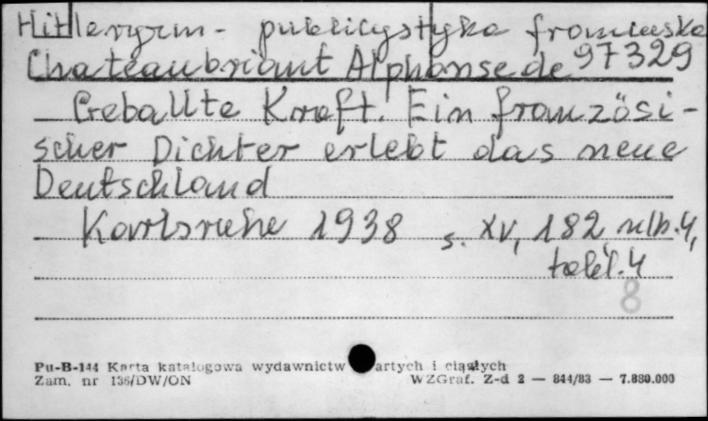 Hitleryzm - publicystyka francuska
Chateaubriant Alphonse de 97329
Geballte Kraft. Ein französi-
scher Dichter erlebt das neue
Deutschland
Karlsruhe 1938 s. XV, 182, nlb. 4,
tabl. 4
8
Pu-B-144 Karta katalogowa wydawnictw artych i ciągłych
Zam. nr 136/DW/ON WZGraf. Z-d 2 — 844/83 — 7.880.000